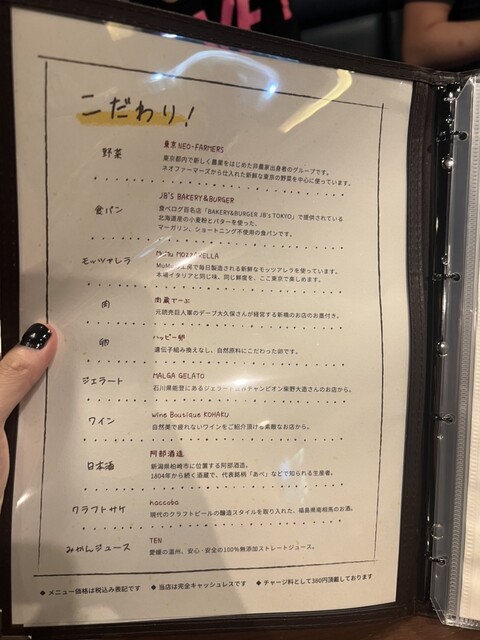 こだわり!
野菜
東京NEO-FARMERS
東京都内で新しく農業をはじめた非農家出身者のグループです。
ネオファーマーズから仕入れた新鮮な東京の野菜を中心に使っています。
食パン
JB'S BAKERY&BURGER
食べログ百名店「BAKERY&BURGER JB's TOKYO」で提供されている
北海道産の小麦粉とバターを使った、
マーガリン、ショートニング不使用の食パンです。
モッツァレラ
MuMu MOZZARELLA
工房で毎日製造される新鮮なモッツアレラを使っています。
本場イタリアと同じ味、同じ鮮度を、ここ東京で楽しめます。
肉
肉蔵でーぶ
元読売巨人軍のデーブ大久保さんが経営する新橋のお店のお墨付き。
卵
ハッピー卵
遺伝子組み換えなし、自然原料にこだわった卵です。
ジェラート
MALGA GELATO
石川県能登にあるジェラート世界チャンピオン柴野大造さんのお店から。
ワイン
Wine Boutique KOHAKU
自然美で疲れないワインをご紹介頂ける素敵なお店から。
日本酒
阿部酒造
新潟県柏崎市に位置する阿部酒造。
1804年から続く酒蔵で、代表銘柄「あべ」などで知られる生産者。
クラフトサケ
haccoba
現代のクラフトビールの醸造スタイルを取り入れた、福島県南相馬のお酒。
みかんジュース
TEN
愛媛の温州、安心・安全の100%無添加ストレートジュース。
◆ メニュー価格は税込み表記です ◆ 当店は完全キャッシュレスです ◆ チャージ料として380円頂戴しております